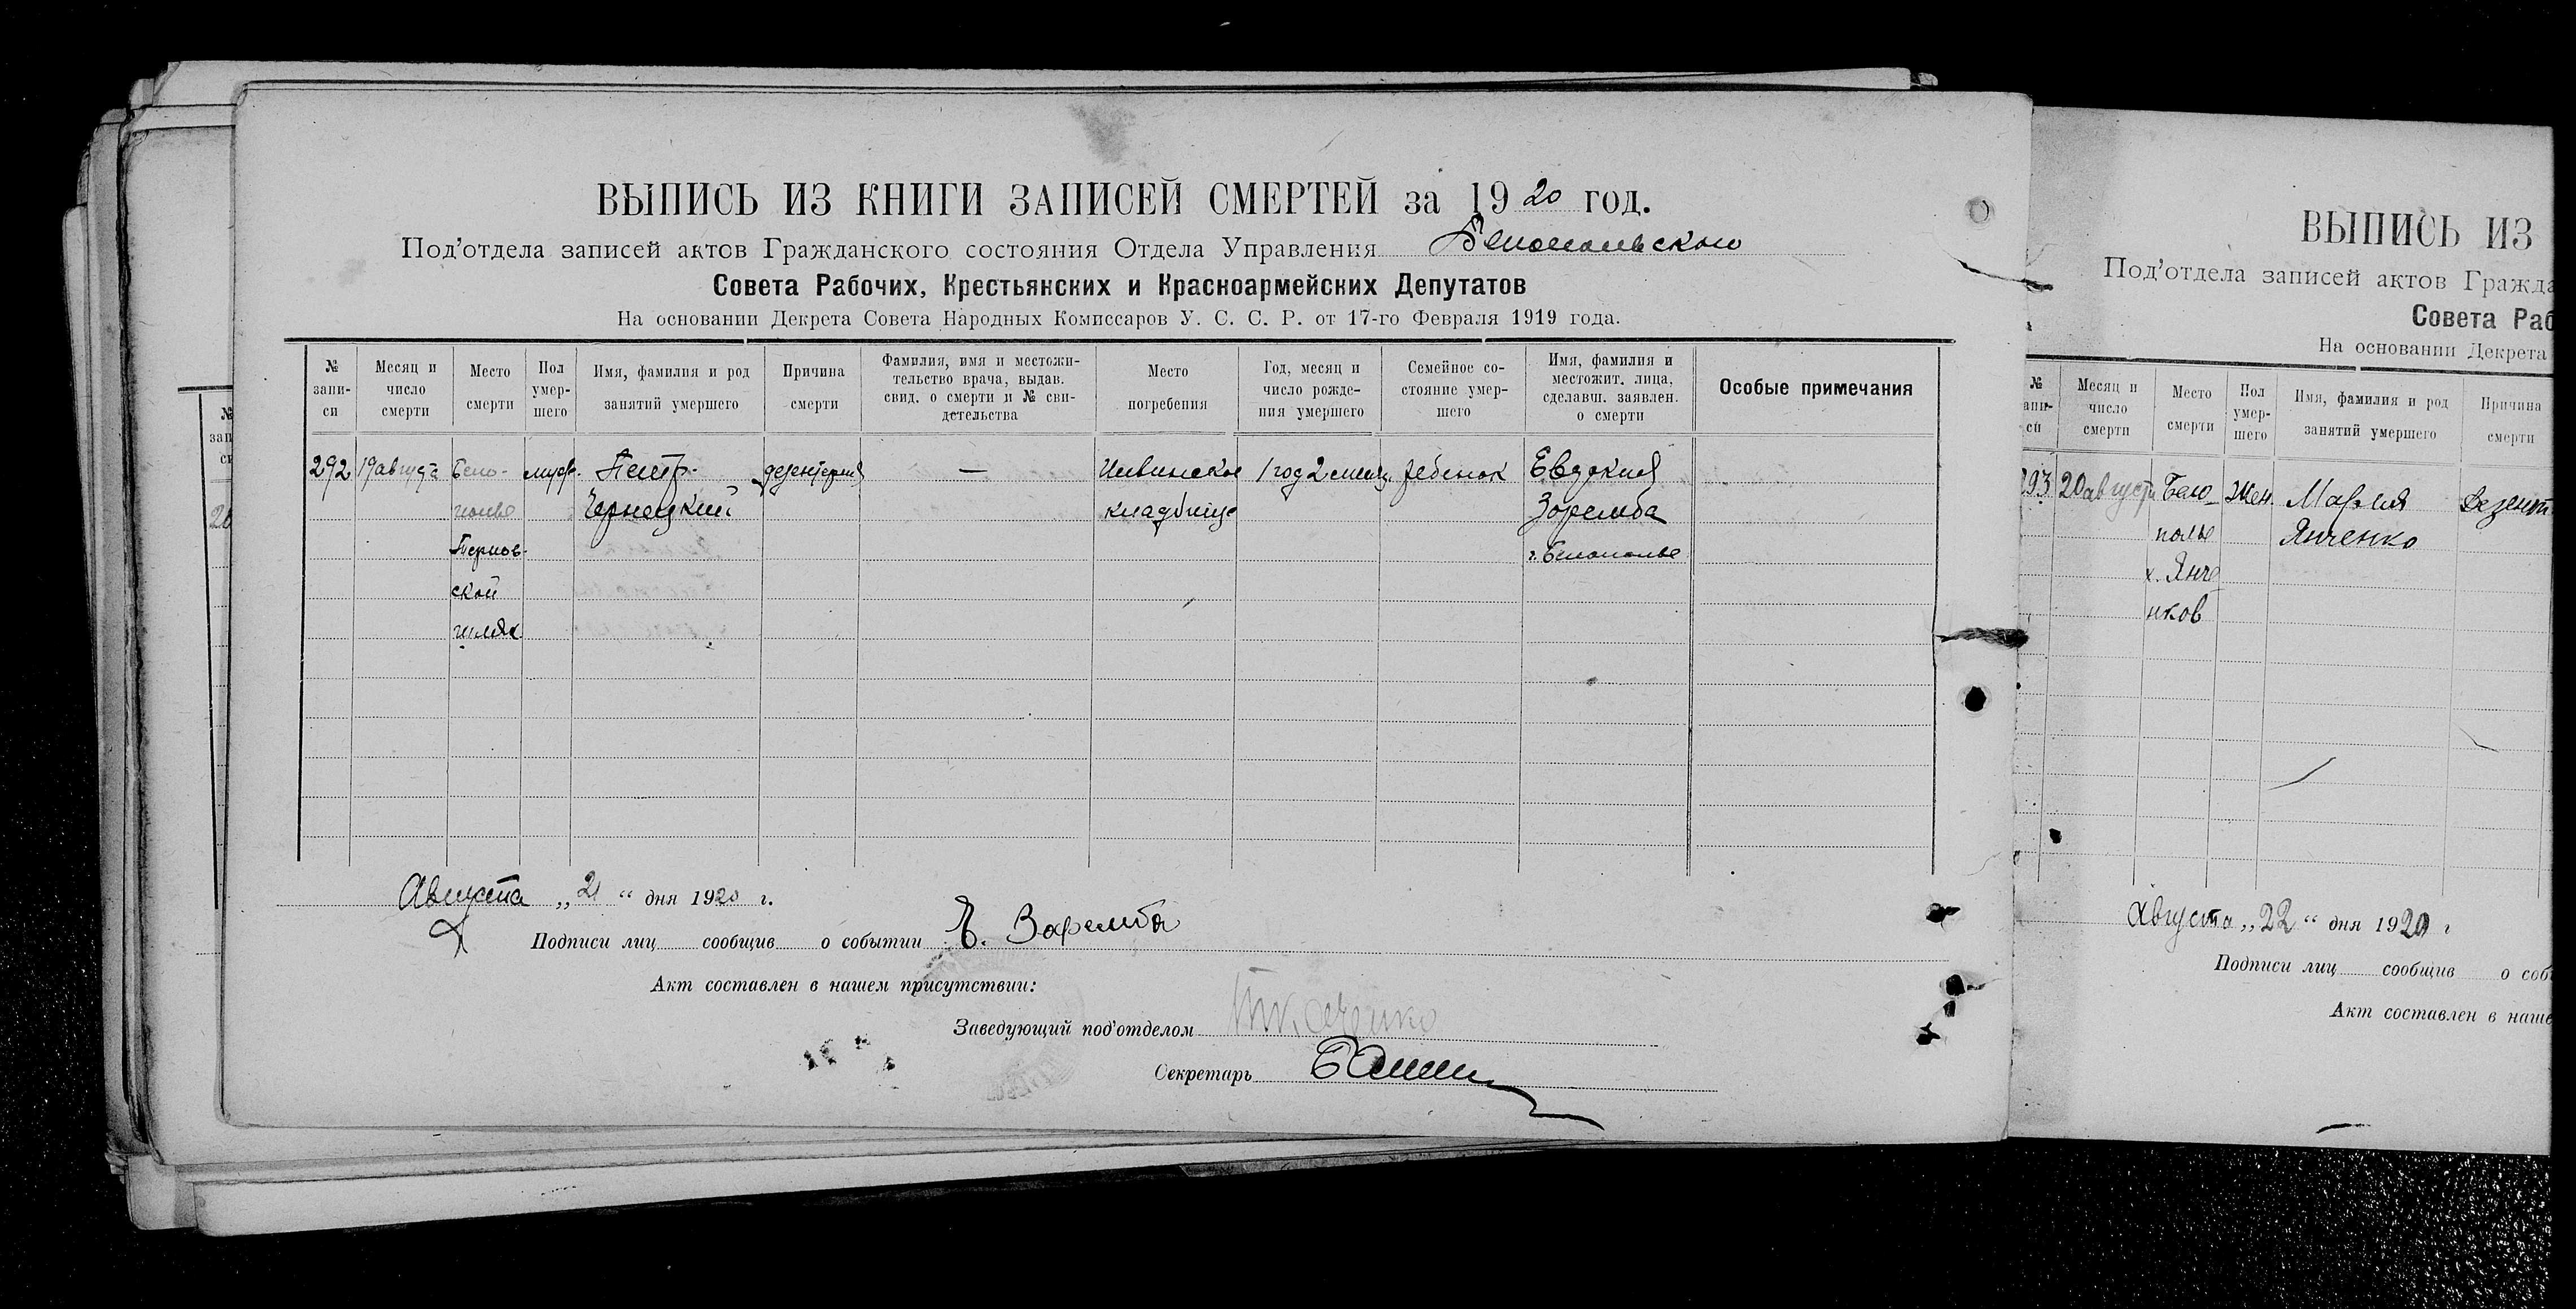 ВЫПИСЬ ИЗ КНИГИ ЗАПИСЕЙ СМЕРТЕЙ за 1920 год.
Под'отдела записей актов Гражданского состояния Отдела Управления Белопольского
Совета Рабочих, Крестьянских и Красноармейских Депутатов
На основании Декрета Совета Народных Комиссаров У. С. С. Р. от 17-го Февраля 1919 года.
№ запи-си
Месяц и число смерти
Место смерти
Пол умер-шего
Имя, фамилия и род занятий умершего
Причина смерти
Фамилия, имя и местожи-тельство врача, выдав. свид. о смерти и № сви-детельства
Место погребения
Год, месяц и число рожде-ния умершего
Семейное со-стояние умер-шего
Имя, фамилия и местожит. лица, сделавш. заявлен. о смерти
Особые примечания
292 19 августа Бело- муж. Петр дезентерия — кладбище 1 год 2 месяц. ребенок Евдокия
полье Чернецкий Зоремба
г. Белополье
ской
шлях
Августа „21“ дня 1920 г.
Подписи лиц сообщив о событии Е. Заремба
Акт составлен в нашем присутствии:
Заведующий под'отделом
Секретарь
ВЫПИСЬ ИЗ
Под'отдела записей актов Гражда
Совета Раб
На основании Декрета
№ апи-си
Месяц и число смерти
Место смерти
Пол умер-шего
Имя, фамилия и род занятий умершего
Причина смерти
293 20 августа Бело- Жен. Мария Дезент
полье Янченко
х. Янче
нков
Августа „22“ дня 1920 г
Подписи лиц сообщив о соб
Акт составлен в наше
№
зап
си